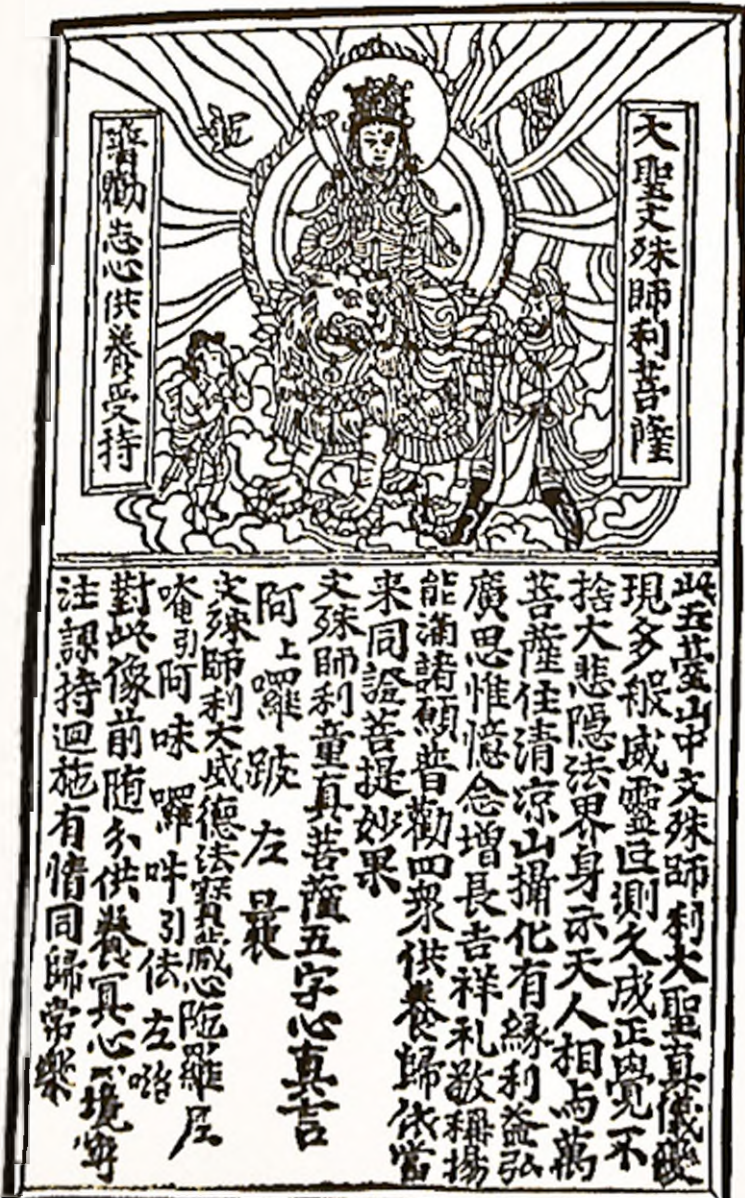 大聖文殊師利菩薩
普勸志心供養受持
此五臺山中文殊師利大聖真儀變
現多般威靈叵測久成正覺不
捨大悲隱法界身示天人相与萬
菩薩住清涼山攝化有緣利益弘
廣思惟憶念增長吉祥礼敬稱揚
能滿諸願普勸四衆供養歸依當
来同證菩提妙果
文殊師利童真菩薩五字心真言
阿上囉跛左曩
文殊師利大威德法寶藏心陀羅尼
唵引阿味囉吽引佉左
對此像前随分供養冥心一境寧
注課持迴施有情同歸常樂